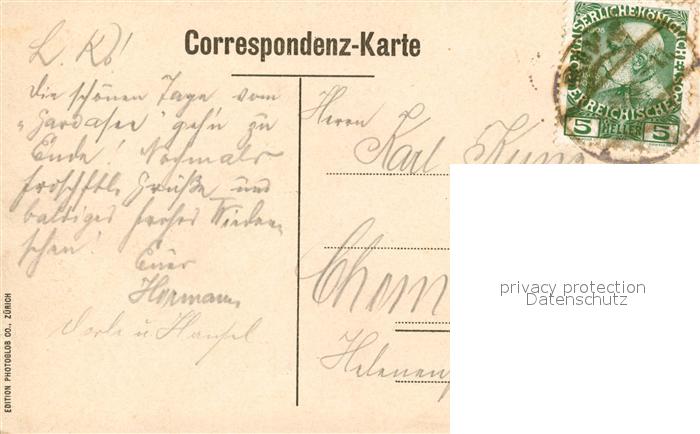 Correspondenz-Karte
L. K!
Die schönen Tage vom
"Gardasee" geh'n zu
Ende! Nochmals
Grüße und
baldiges frohes Wieder-
sehen!
Euer
Hermann
Dorle u Hansel
Herrn
Karl Kunz
Chem
Helenen
KAISERLICHE KÖNIGLICHE
ÖSTERREICHISCHE
5 HELLER 5
EDITION PHOTOGLOB CO., ZÜRICH
privacy protection
Datenschutz